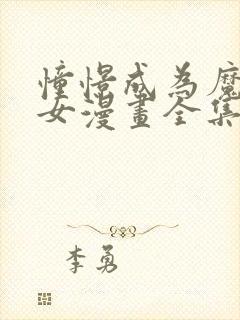 憧憬成為魔
女漫畫全集
李勇